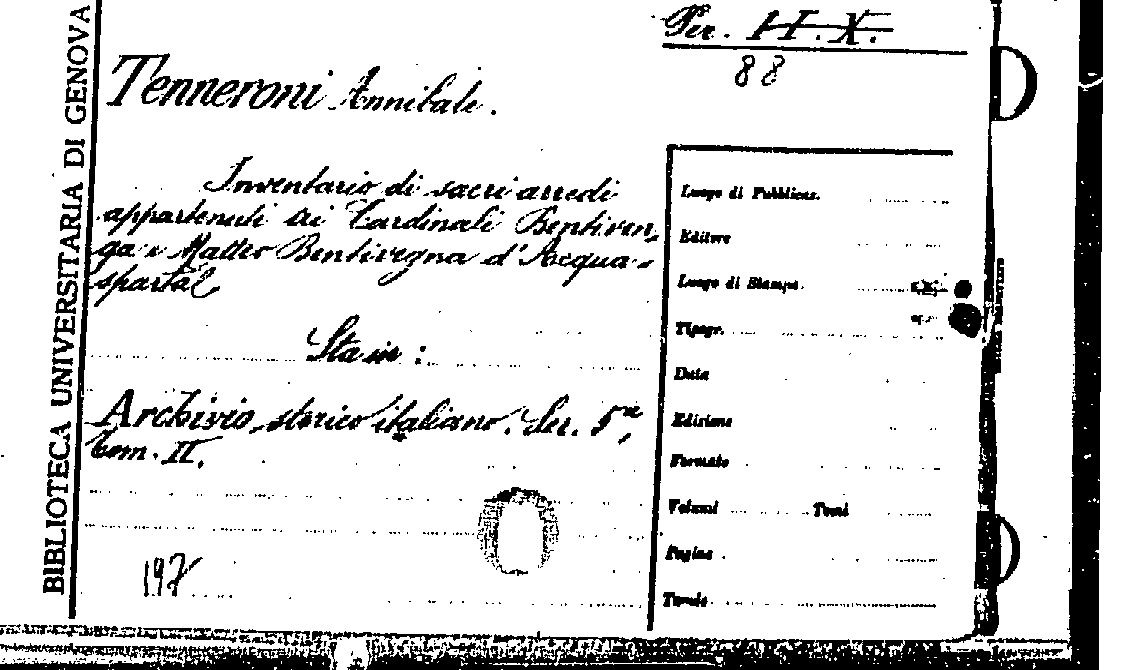 BIBLIOTECA UNIVERSITARIA DI GENOVA
Per. II. X.
88
Tenneroni Annibale.
Inventario di sacri arredi
appartenuti ai Cardinali Bentiven-
ga e Matteo Bentivegna d'Acqua-
sparta
Sta in:
Archivio storico italiano. Ser. 5ª,
Tom. II.
197
Luogo di Pubblicaz.
Editore
Luogo di Stampa.
Tipogr.
Data
Edizione
Formato
Volumi Tomi
Pagine
Tavole